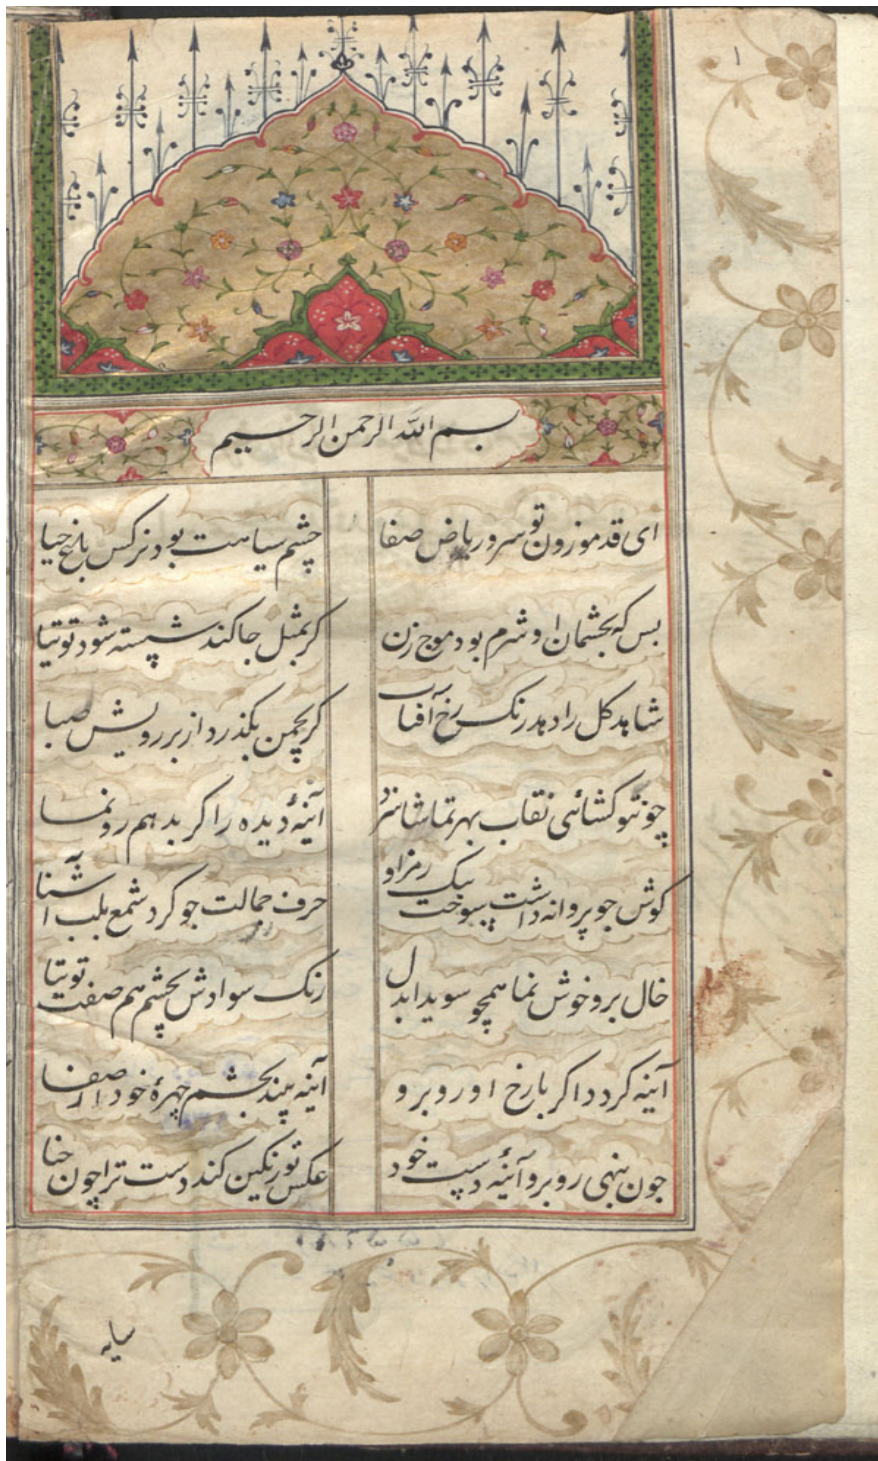 ۱
بسم الله الرحمن الرحیم
ای قد موزون تو سرو ریاض صفا چشم سیاهت بود نرکس باغ حیا
بس که بچشمان او شرم بود موج زن کر بمثل جا کند شسته شود توتیا
شاهد کل را دهد رنک رخ آفتاب کر بچمن بکذرد از بر رویش صبا
چو تو کشائی نقاب بهر تماشا سزد آئینهٔ دیده را کر بدهم رونما
کوش چو پروانه داشت سوخت بیک رمز او حرف جمالت چو کرد شمع بلب آشنا
خال برو خوش نما همچو سویدا بدل رنک سوادش بچشم هم صفت توتیا
آینه کردد اکر با رخ او روبرو آینه بیند بچشم چهرهٔ خود از صفا
چون بنهی روبرو آئینهٔ دست خود عکس تو رنکین کند دست ترا چون حنا
سایه